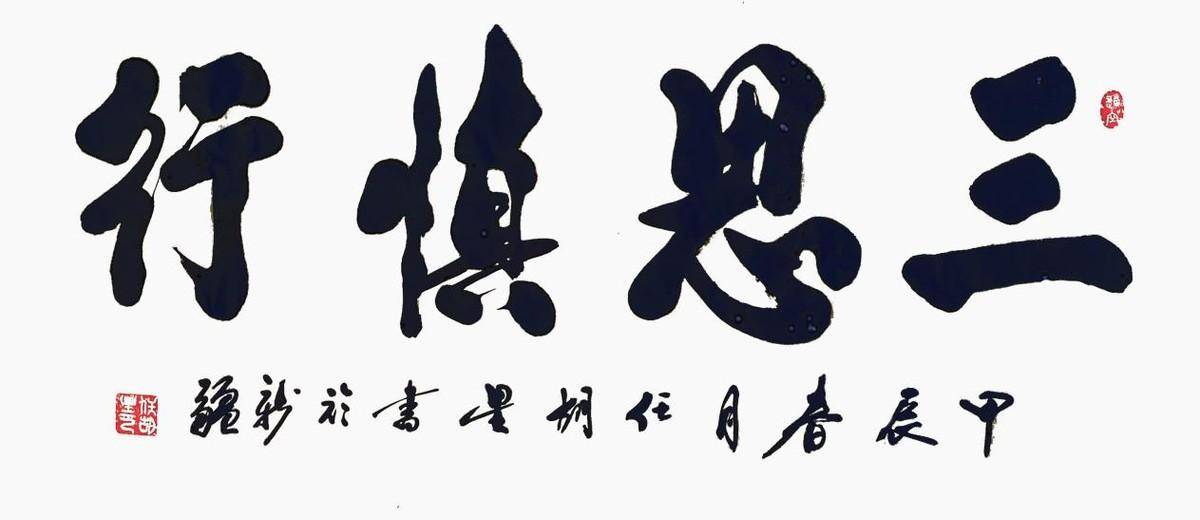 三思慎行
甲辰春月任胡星書於新疆